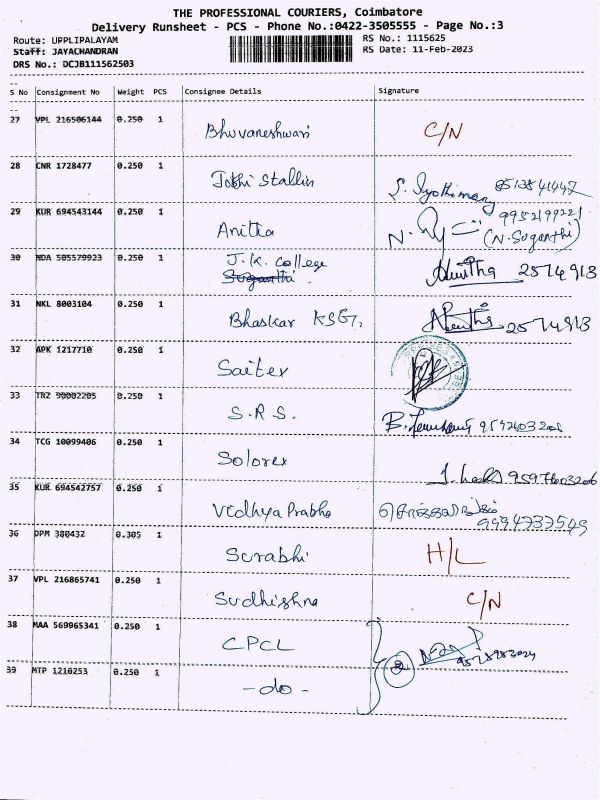 THE PROFESSIONAL COURIERS, Coimbatore
Delivery Runsheet - PCS - Phone No.:0422-3505555 - Page No.:3
Route: UPPLIPALAYAM RS No.: 1115625
Staff: JAYACHANDRAN RS Date: 11-Feb-2023
DRS No.: DCJB111562503
S No Consignment No Weight PCS Consignee Details Signature
27 VPL 216506144 0.250 1 Bhuvaneshwari C/N
28 CNR 1728477 0.250 1 Jothi Stallin
29 KUR 694543144 0.250 1 Anitha (N. Suganthi)
30 NDA 505579923 0.250 1 J.K. College Suganthi Anitha 2574913
31 NKL 8003104 0.250 1 Bhaskar 2574913
32 APK 1217710 0.250 1 Saitex
33 TRZ 90002205 0.250 1 S.R.S.
34 TCG 10099406 0.250 1 Solorex
35 KUR 694542757 0.250 1 Vidhya Prabha
36 DPM 380432 0.305 1 Surabhi H/L
37 VPL 216865741 0.250 1 Sudhishna C/N
38 MAA 569965341 0.250 1 CPCL
39 MTP 1210253 0.250 1 -do-